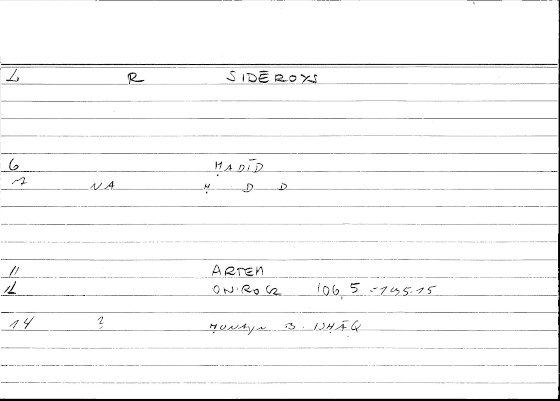 L R SIDĒROYS
6 ḤADĪD
7 NA Ḥ D D
11 ARTEM
12 ONIROCR 106,5 - 195.15
14 ? ḤUNAYN B. ISḤĀQ